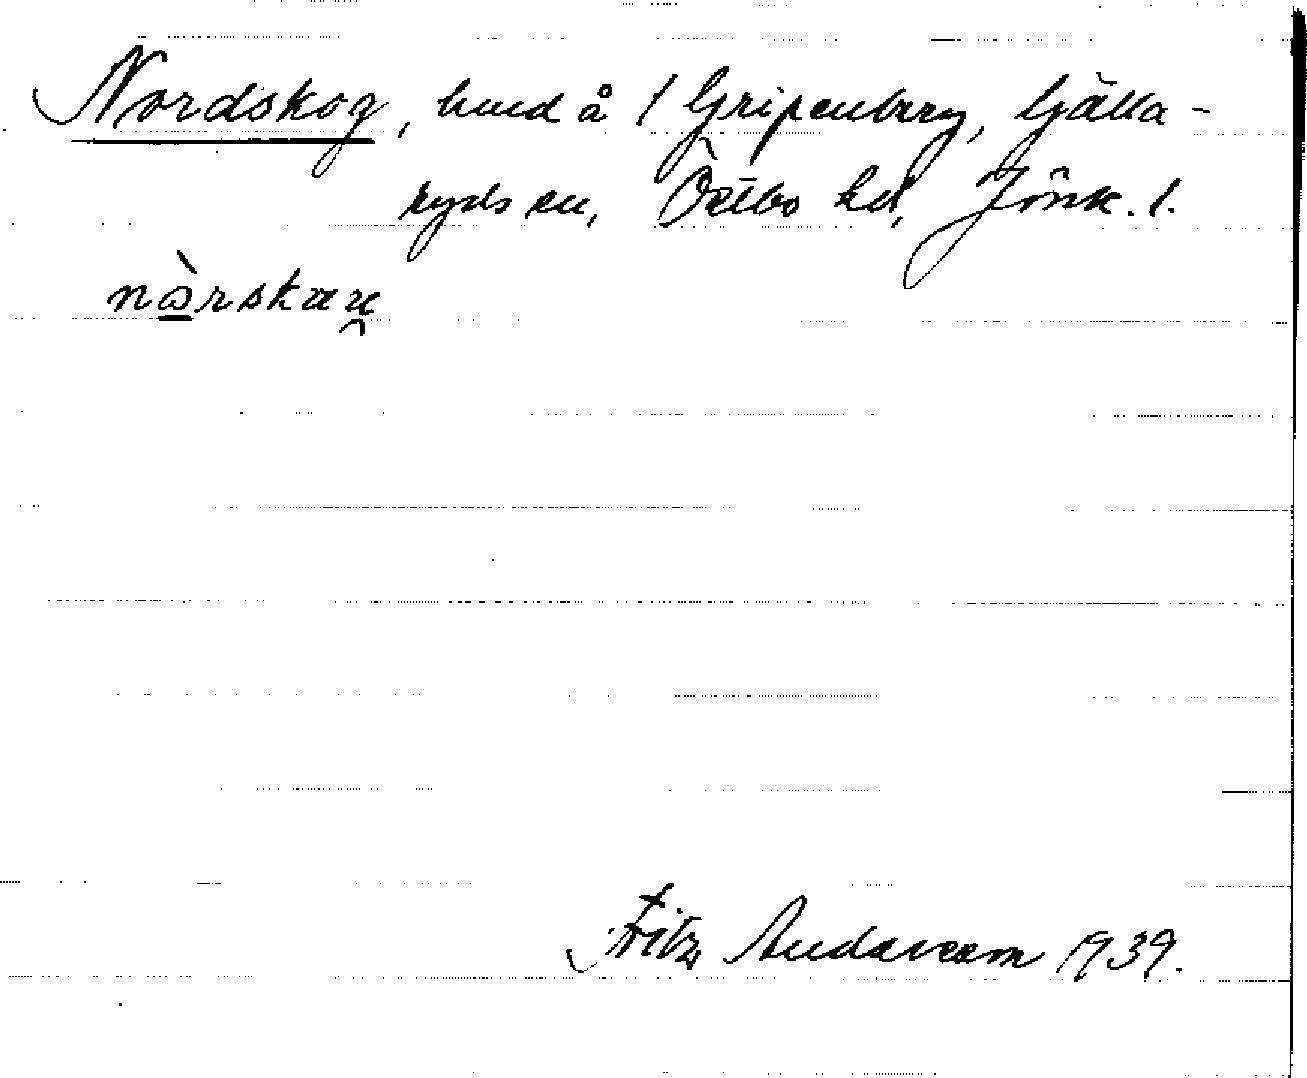 Nordskog, hmd å 1 Gripenberg, Gälla-
ryds sn, Östbo hd, Jönk. l.
Fritz Andaresm 1939.